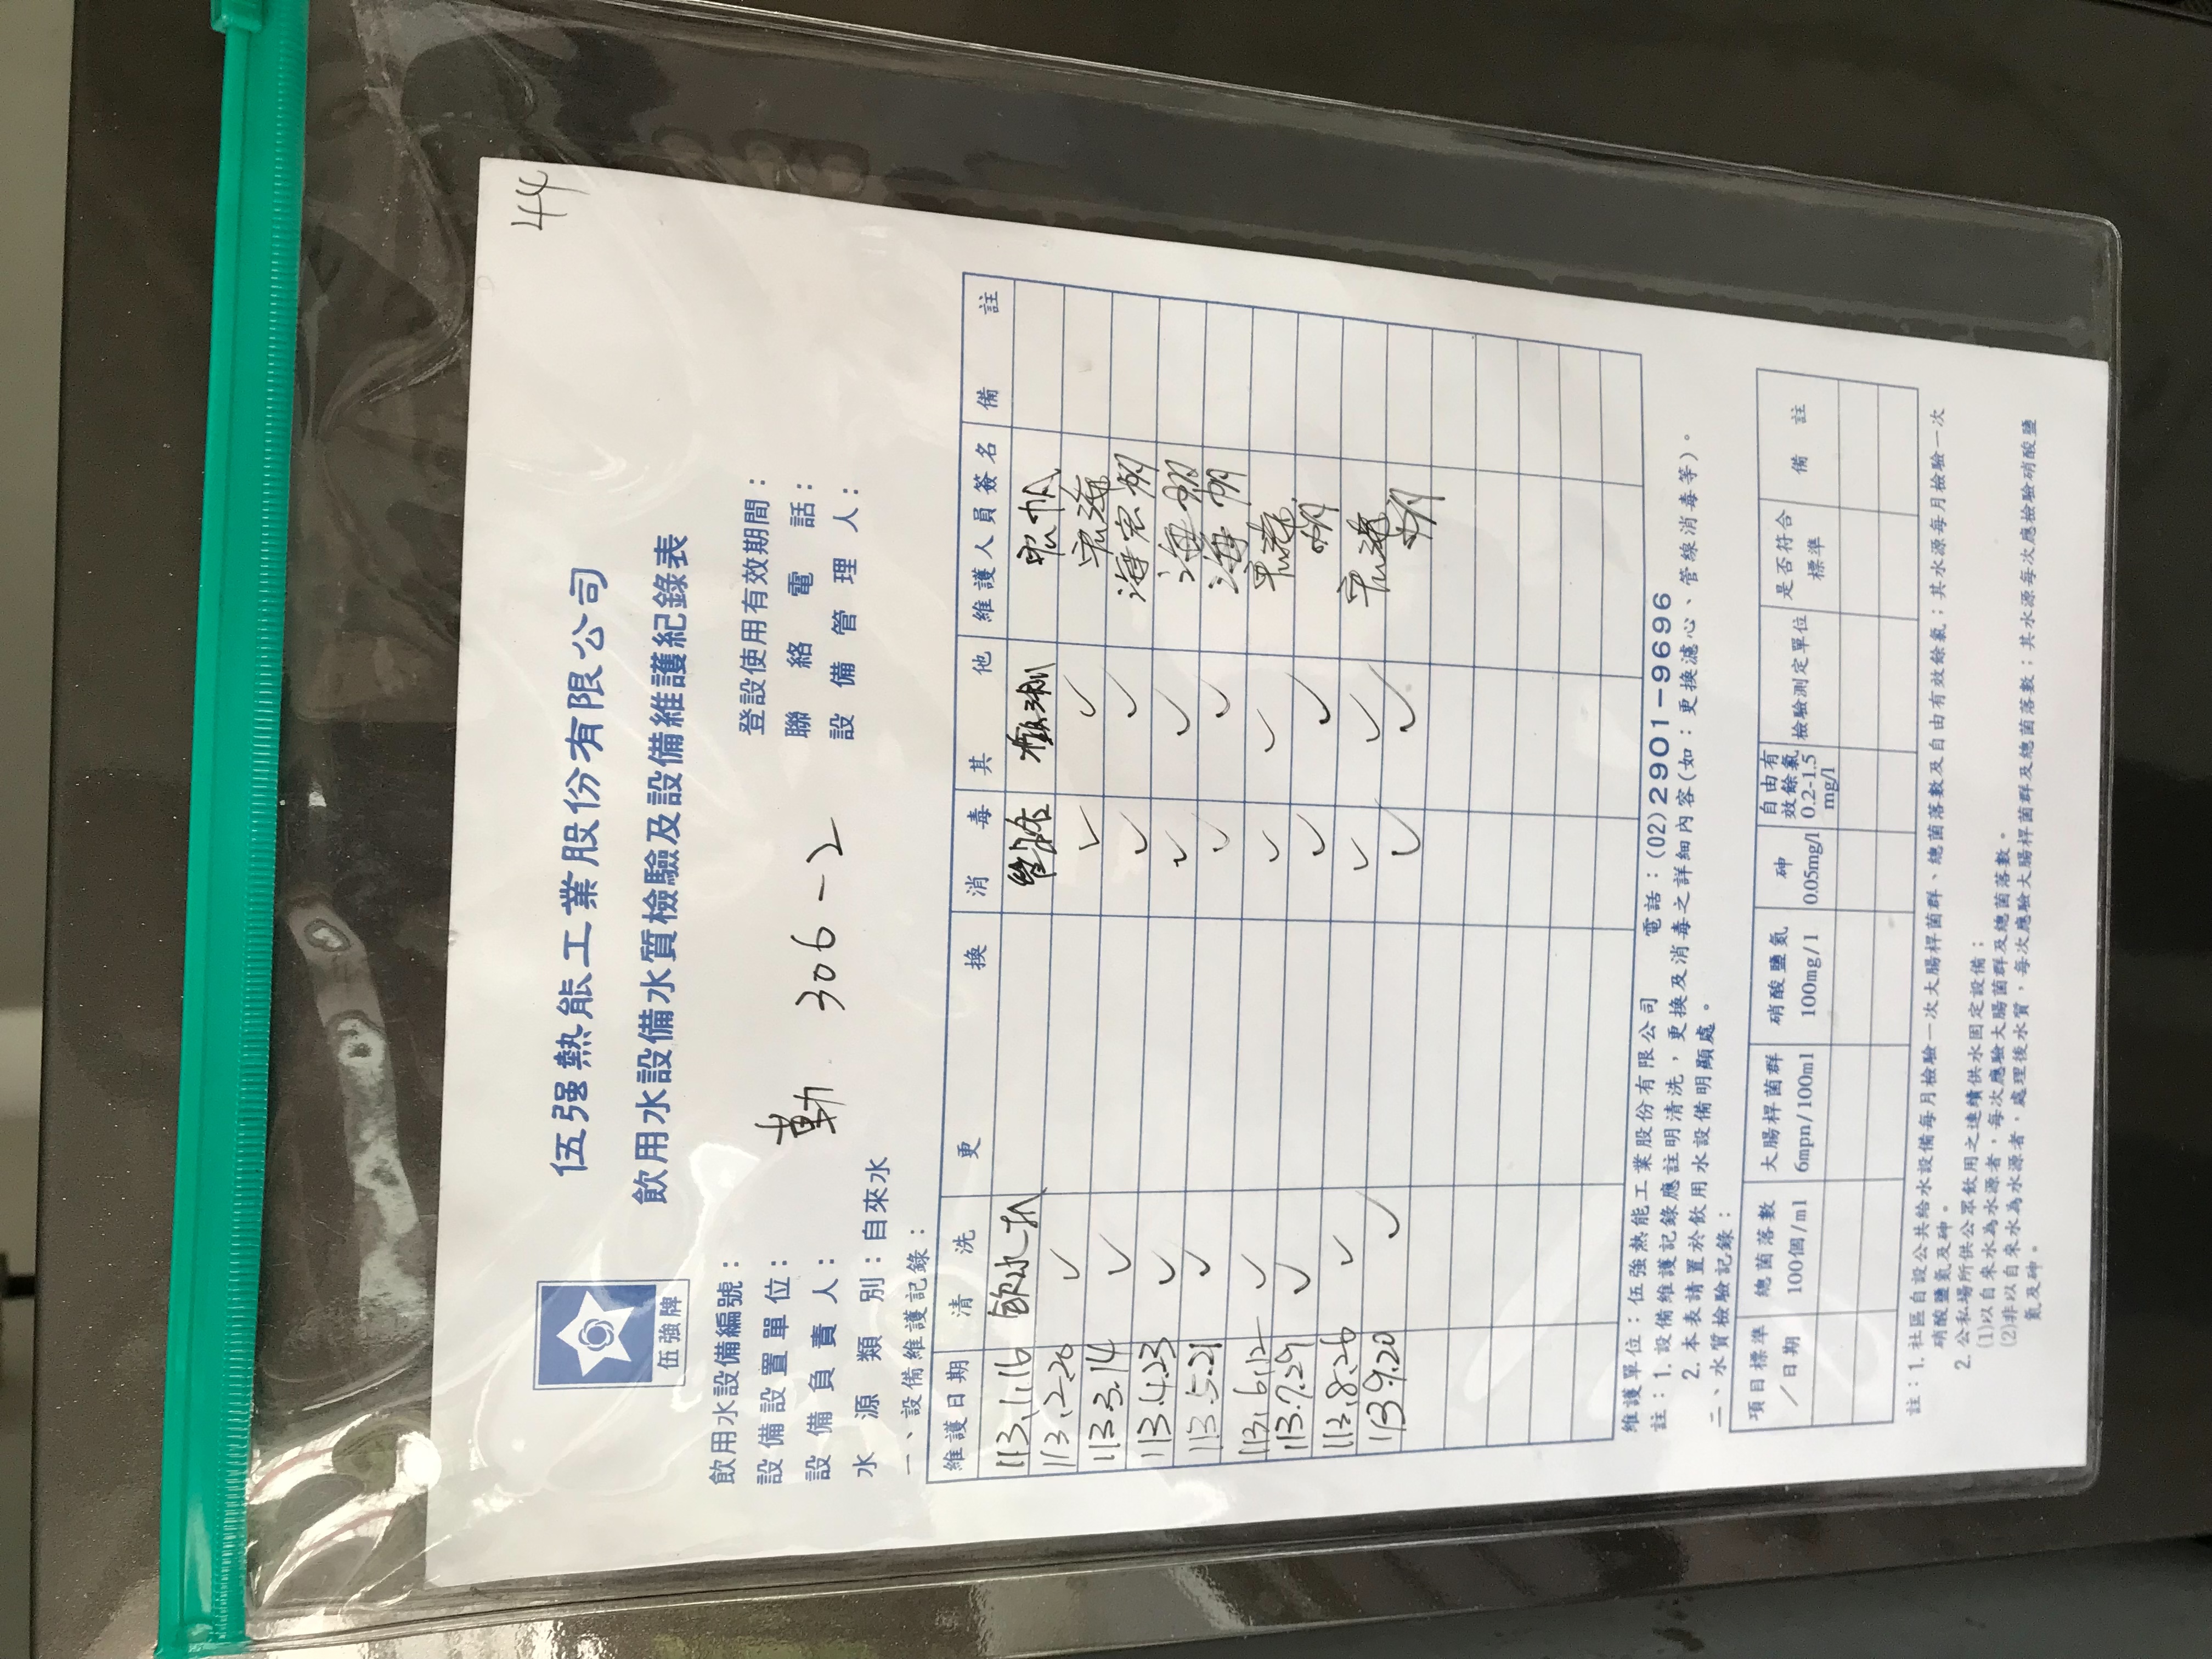 44
伍強牌
伍強熱能工業股份有限公司
飲用水設備水質檢驗及設備維護紀錄表
飲用水設備編號：
登設使用有效期間：
設備設置單位：
勤 306-2
聯絡電話：
設備負責人：
設備管理人：
水源類別：自來水
一、設備維護記錄：
維護日期 清洗 更換 消毒 其他 維護人員簽名 備註
113.1.16 飲水機 管路
113.2.26 ✓ ✓ ✓
113.3.14 ✓ ✓ ✓
113.4.23 ✓ ✓ ✓
113.5.21 ✓ ✓ ✓
113.6.12 ✓ ✓ ✓
113.7.29 ✓ ✓ ✓
113.8.26 ✓ ✓ ✓
113.9.20 ✓ ✓ ✓
維護單位：伍強熱能工業股份有限公司 電話：(02)2901-9696
註：1. 設備維護記錄應註明清洗，更換及消毒之詳細內容(如：更換濾心、管線消毒等)。
2. 本表請置於飲用水設備明顯處。
二、水質檢驗記錄：
項目標準／日期 總菌落數 100個/ml 大腸桿菌群 6mpn/100ml 硝酸鹽氮 100mg/l 砷 0.05mg/l 自由有效餘氯 0.2-1.5 mg/l 檢驗測定單位 是否符合標準 備註
註：1. 社區自設公共給水設備每月檢驗一次大腸桿菌群、總菌落數及自由有效餘氯；其水源每月檢驗一次
硝酸鹽氮及砷。
2. 公私場所供公眾飲用之連續供水固定設備：
(1)以自來水為水源者，每次應驗大腸菌群及總菌落數。
(2)非以自來水為水源者，處理後水質，每次應驗大腸桿菌群及總菌落數；其水源每次應檢驗硝酸鹽
氮及砷。